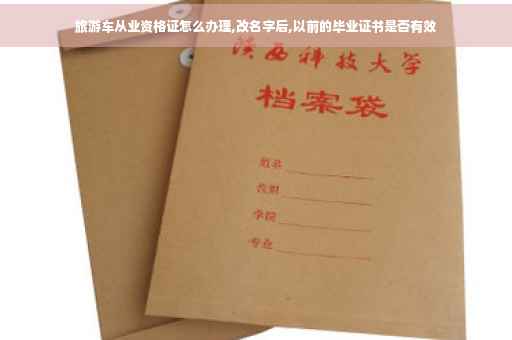 旅游车从业资格证怎么办理,改名字后,以前的毕业证书是否有效
陕西科技大学
档案袋
姓名
性别
学院
专业